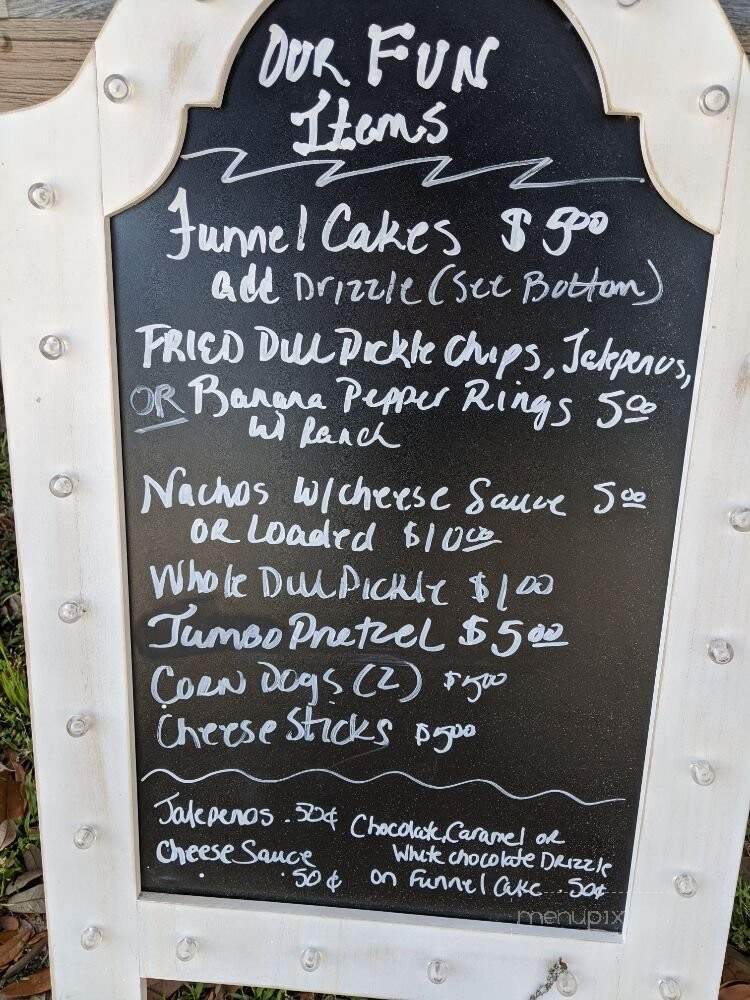 OUR FUN
Items
Funnel Cakes $ 5.00
add Drizzle (See Bottom)
FRIED Dill Pickle Chips, Jalepenos,
OR Banana Pepper Rings 5.00
w/ Ranch
Nachos w/cheese Sauce 5.00
OR Loaded $10.00
Whole Dill Pickle $1.00
Jumbo Pretzel $5.00
Corn Dogs (2) $5.00
Cheese Sticks $5.00
Jalepenos .50¢
Cheese Sauce
.50¢
Chocolate, Caramel or
White chocolate Drizzle
on Funnel Cake .50¢
menupix